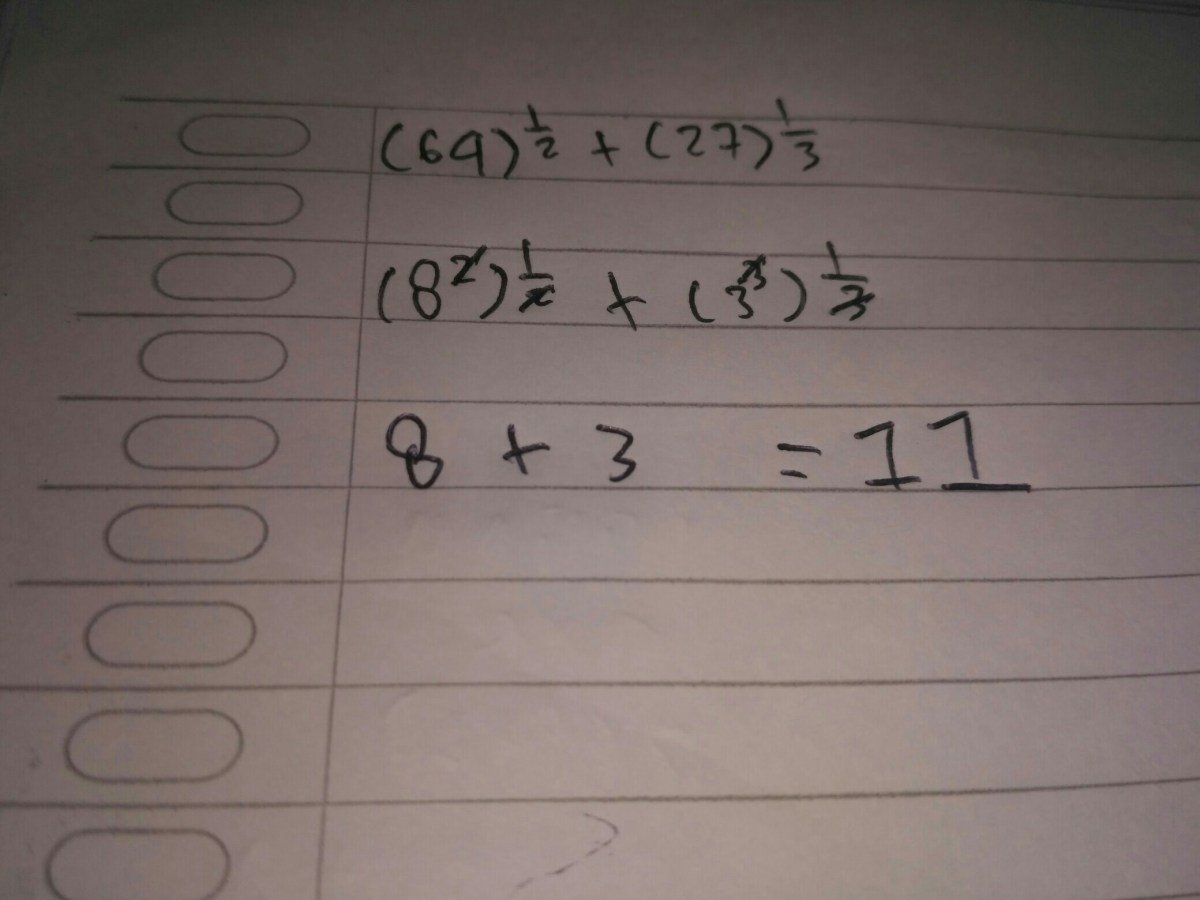 (64)^(1/2) + (27)^(1/3)
(8^2)^(1/2) + (3^3)^(1/3)
8 + 3 = 11